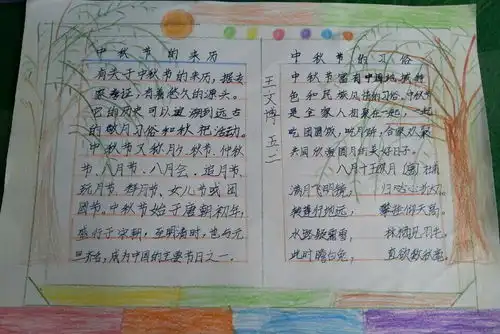 中秋节的来历
有关于中秋节的来历，据专
家考证，有着悠久的源头。
它的历史可以追溯到远古
的敬月习俗和秋祀活动。
中秋节又称月夕、秋节、仲秋
节、八月节、八月会、追月节、
玩月节、拜月节、女儿节或团
圆节。中秋节始于唐朝初年，
盛行于宋朝，至明清时，已与元
旦齐名，成为中国的主要节日之一。
王文博 五二
中秋节的习俗
中秋节富有中国地域特
色和民族风情的习俗。中秋节
是全家人相聚在一起，一起
吃团圆饭，吃月饼，合家欢聚
共同欣赏圆月的美好日子。
八月十五夜月
满月飞明镜，归心折大刀。
转蓬行地远，攀桂仰天高。
水路疑霜雪，林栖见羽毛。
此时瞻白兔，直欲数秋毫。